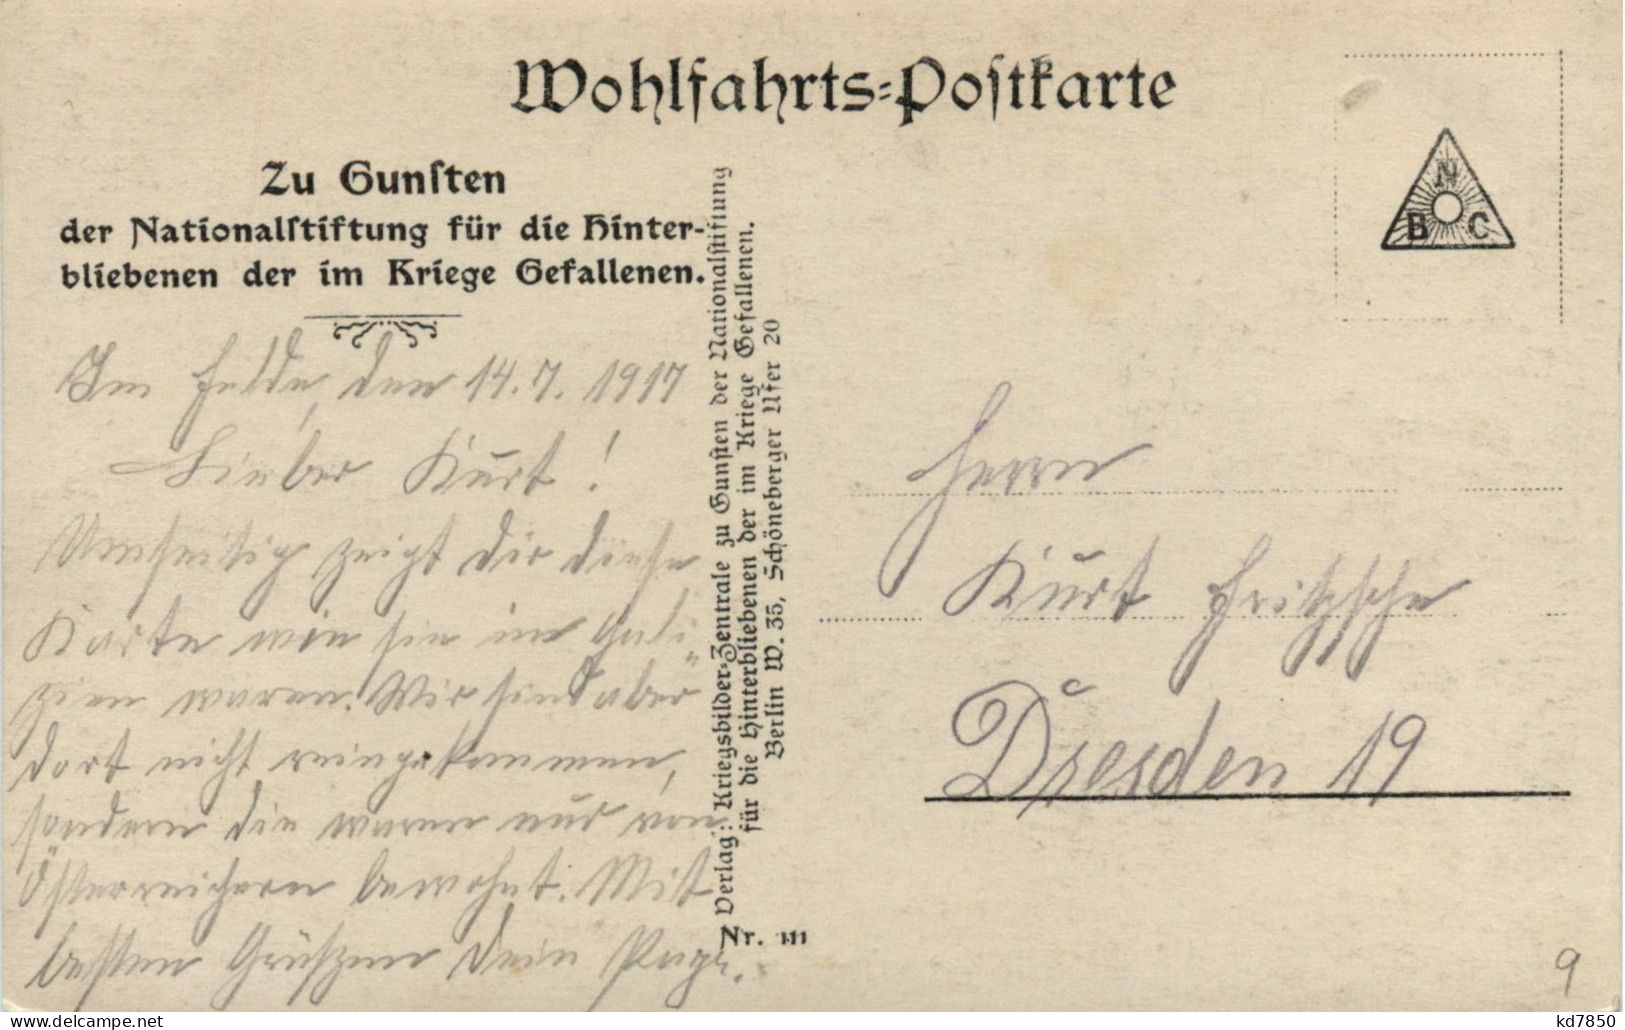 Wohlfahrts-Postkarte
Zu Gunsten
der Nationalstiftung für die Hinter-
bliebenen der im Kriege Gefallenen.
Im Felde, den 14.7.1917
Lieber Kurt!
Umseitig zeigt dir diese
Karte wie sie in Gali
zien waren. Wir sind aber
dort nicht reingekommen,
sondern die waren nur von
Österreichern bewohnt. Mit
besten Grüßen Dein
Verlag: Kriegsbilder-Zentrale zu Gunsten der Nationalstiftung
für die Hinterbliebenen der im Kriege Gefallenen.
Berlin W. 35, Schöneberger Ufer 20
Nr. 111
N
B C
Herrn
Kurt Fritzsche
Dresden 19
9
kd7850